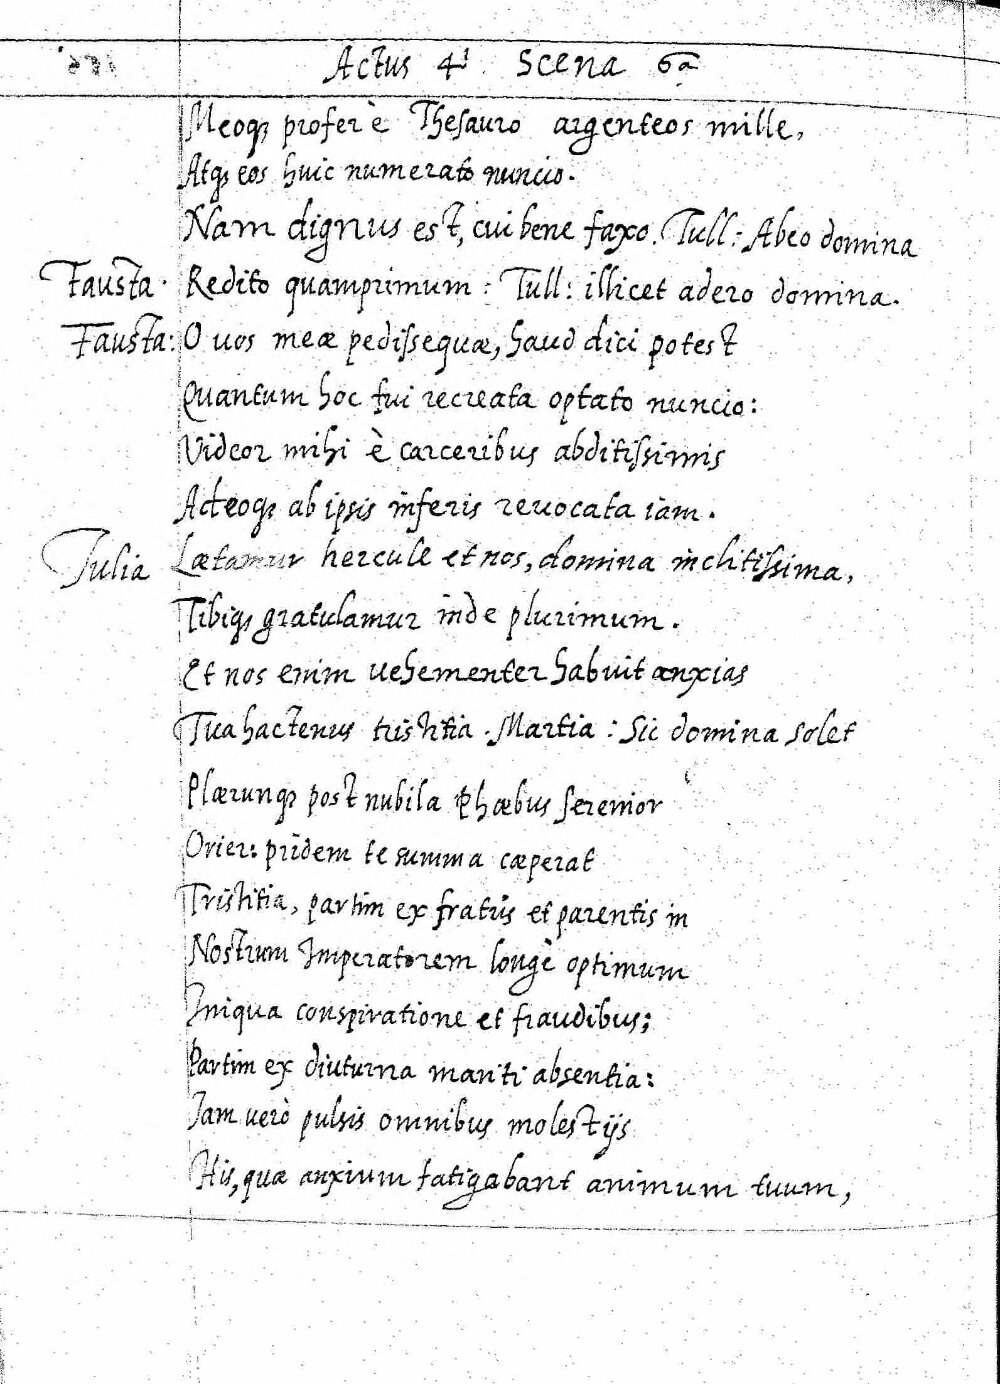 Actus 4i. Scena 6a.
Meoq; profer è Thesauro argenteos mille,
Atq; eos huic numerato nuncio.
Nam dignus est, cui bene faxo. Tull: Abeo domina
Fausta. Redito quamprimum: Tull: illicet adero domina.
Fausta: O uos meæ pedissequæ, haud dici potest
Quantum hoc fui recreata optato nuncio:
Videor mihi è carceribus abditissimis
Acteoq; ab ipsis inferis reuocata iam.
Julia Lætamur hercule et nos, domina inclitissima,
Tibiq; gratulamur inde plurimum.
Et nos enim uehementer habuit anxias
Tua hactenus tristitia. Martia: Sic domina solet
Plærunq; post nubila Phæbus serenior
Orier: pridem te summa cæperat
Tristitia, partim ex fratris et parentis in
Nostrum Imperatorem longè optimum
Iniqua conspiratione et fraudibus;
Partim ex diuturna mariti absentia:
Iam uerò pulsis omnibus molestijs
His, quæ anxium fatigabant animum tuum,